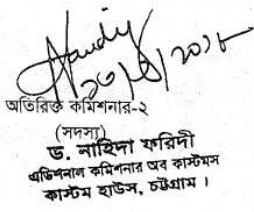 অতিরিক্ত কমিশনার-২
(সদস্য)
ড. নাহিদা ফরিদী
এডিশনাল কমিশনার অব কাস্টমস
কাস্টম হাউস, চট্টগ্রাম ।